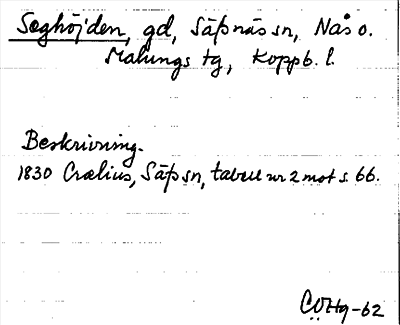 Sæghöjden, gd, Säfsnäs sn, Nås o.
Malungs tg, Koppb. l.
Beskrivning.
1830 Crælius, Säfs sn, tabell nr 2 mot s. 66.
CÖHg-62